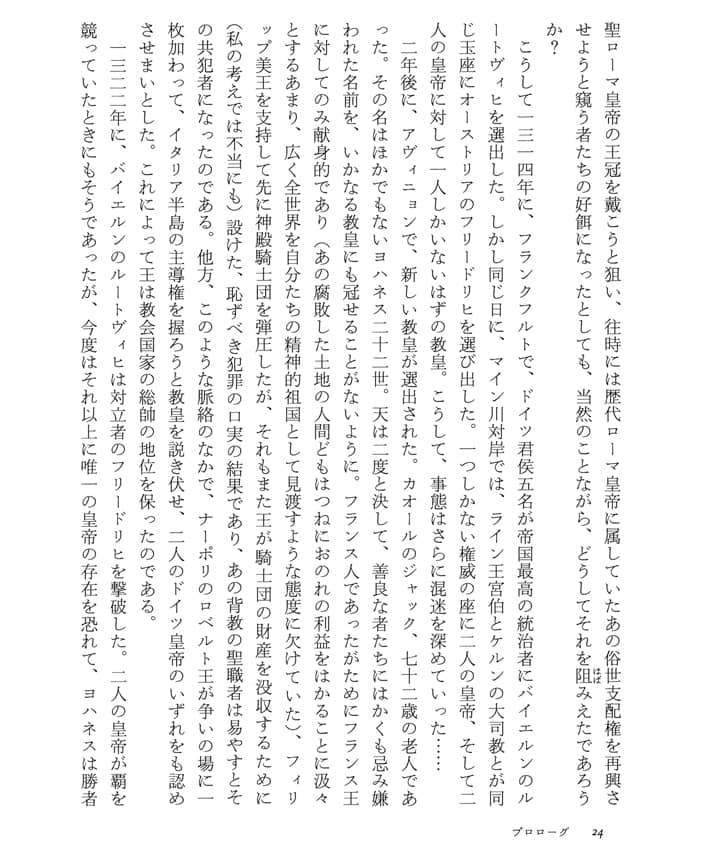 聖ローマ皇帝の王冠を戴こうと狙い、往時には歴代ローマ皇帝に属していたあの俗世支配権を再興さ
せようと窺う者たちの好餌になったとしても、当然のことながら、どうしてそれを阻はばみえたであろう
か?
こうして一三一四年に、フランクフルトで、ドイツ君侯五名が帝国最高の統治者にバイエルンのル
ートヴィヒを選出した。しかし同じ日に、マイン川対岸では、ライン王宮伯とケルンの大司教とが同
じ玉座にオーストリアのフリードリヒを選び出した。一つしかない権威の座に二人の皇帝、そして二
人の皇帝に対して一人しかいないはずの教皇。こうして、事態はさらに混迷を深めていった……
二年後に、アヴィニョンで、新しい教皇が選出された。カオールのジャック、七十二歳の老人であ
った。その名はほかでもないヨハネス二十二世。天は二度と決して、善良な者たちにはかくも忌み嫌
われた名前を、いかなる教皇にも冠せることがないように。フランス人であったがためにフランス王
に対してのみ献身的であり(あの腐敗した土地の人間どもはつねにおのれの利益をはかることに汲々
とするあまり、広く全世界を自分たちの精神的祖国として見渡すような態度に欠けていた)、フィリ
ップ美王を支持して先に神殿騎士団を弾圧したが、それもまた王が騎士団の財産を没収するために
(私の考えでは不当にも)設けた、恥ずべき犯罪の口実の結果であり、あの背教の聖職者は易やすとそ
の共犯者になったのである。他方、このような脈絡のなかで、ナーポリのロベルト王が争いの場に一
枚加わって、イタリア半島の主導権を握ろうと教皇を説き伏せ、二人のドイツ皇帝のいずれをも認め
させまいとした。これによって王は教会国家の総帥の地位を保ったのである。
一三二二年に、バイエルンのルートヴィヒは対立者のフリードリヒを撃破した。二人の皇帝が覇を
競っていたときにもそうであったが、今度はそれ以上に唯一の皇帝の存在を恐れて、ヨハネスは勝者
プロローグ 24